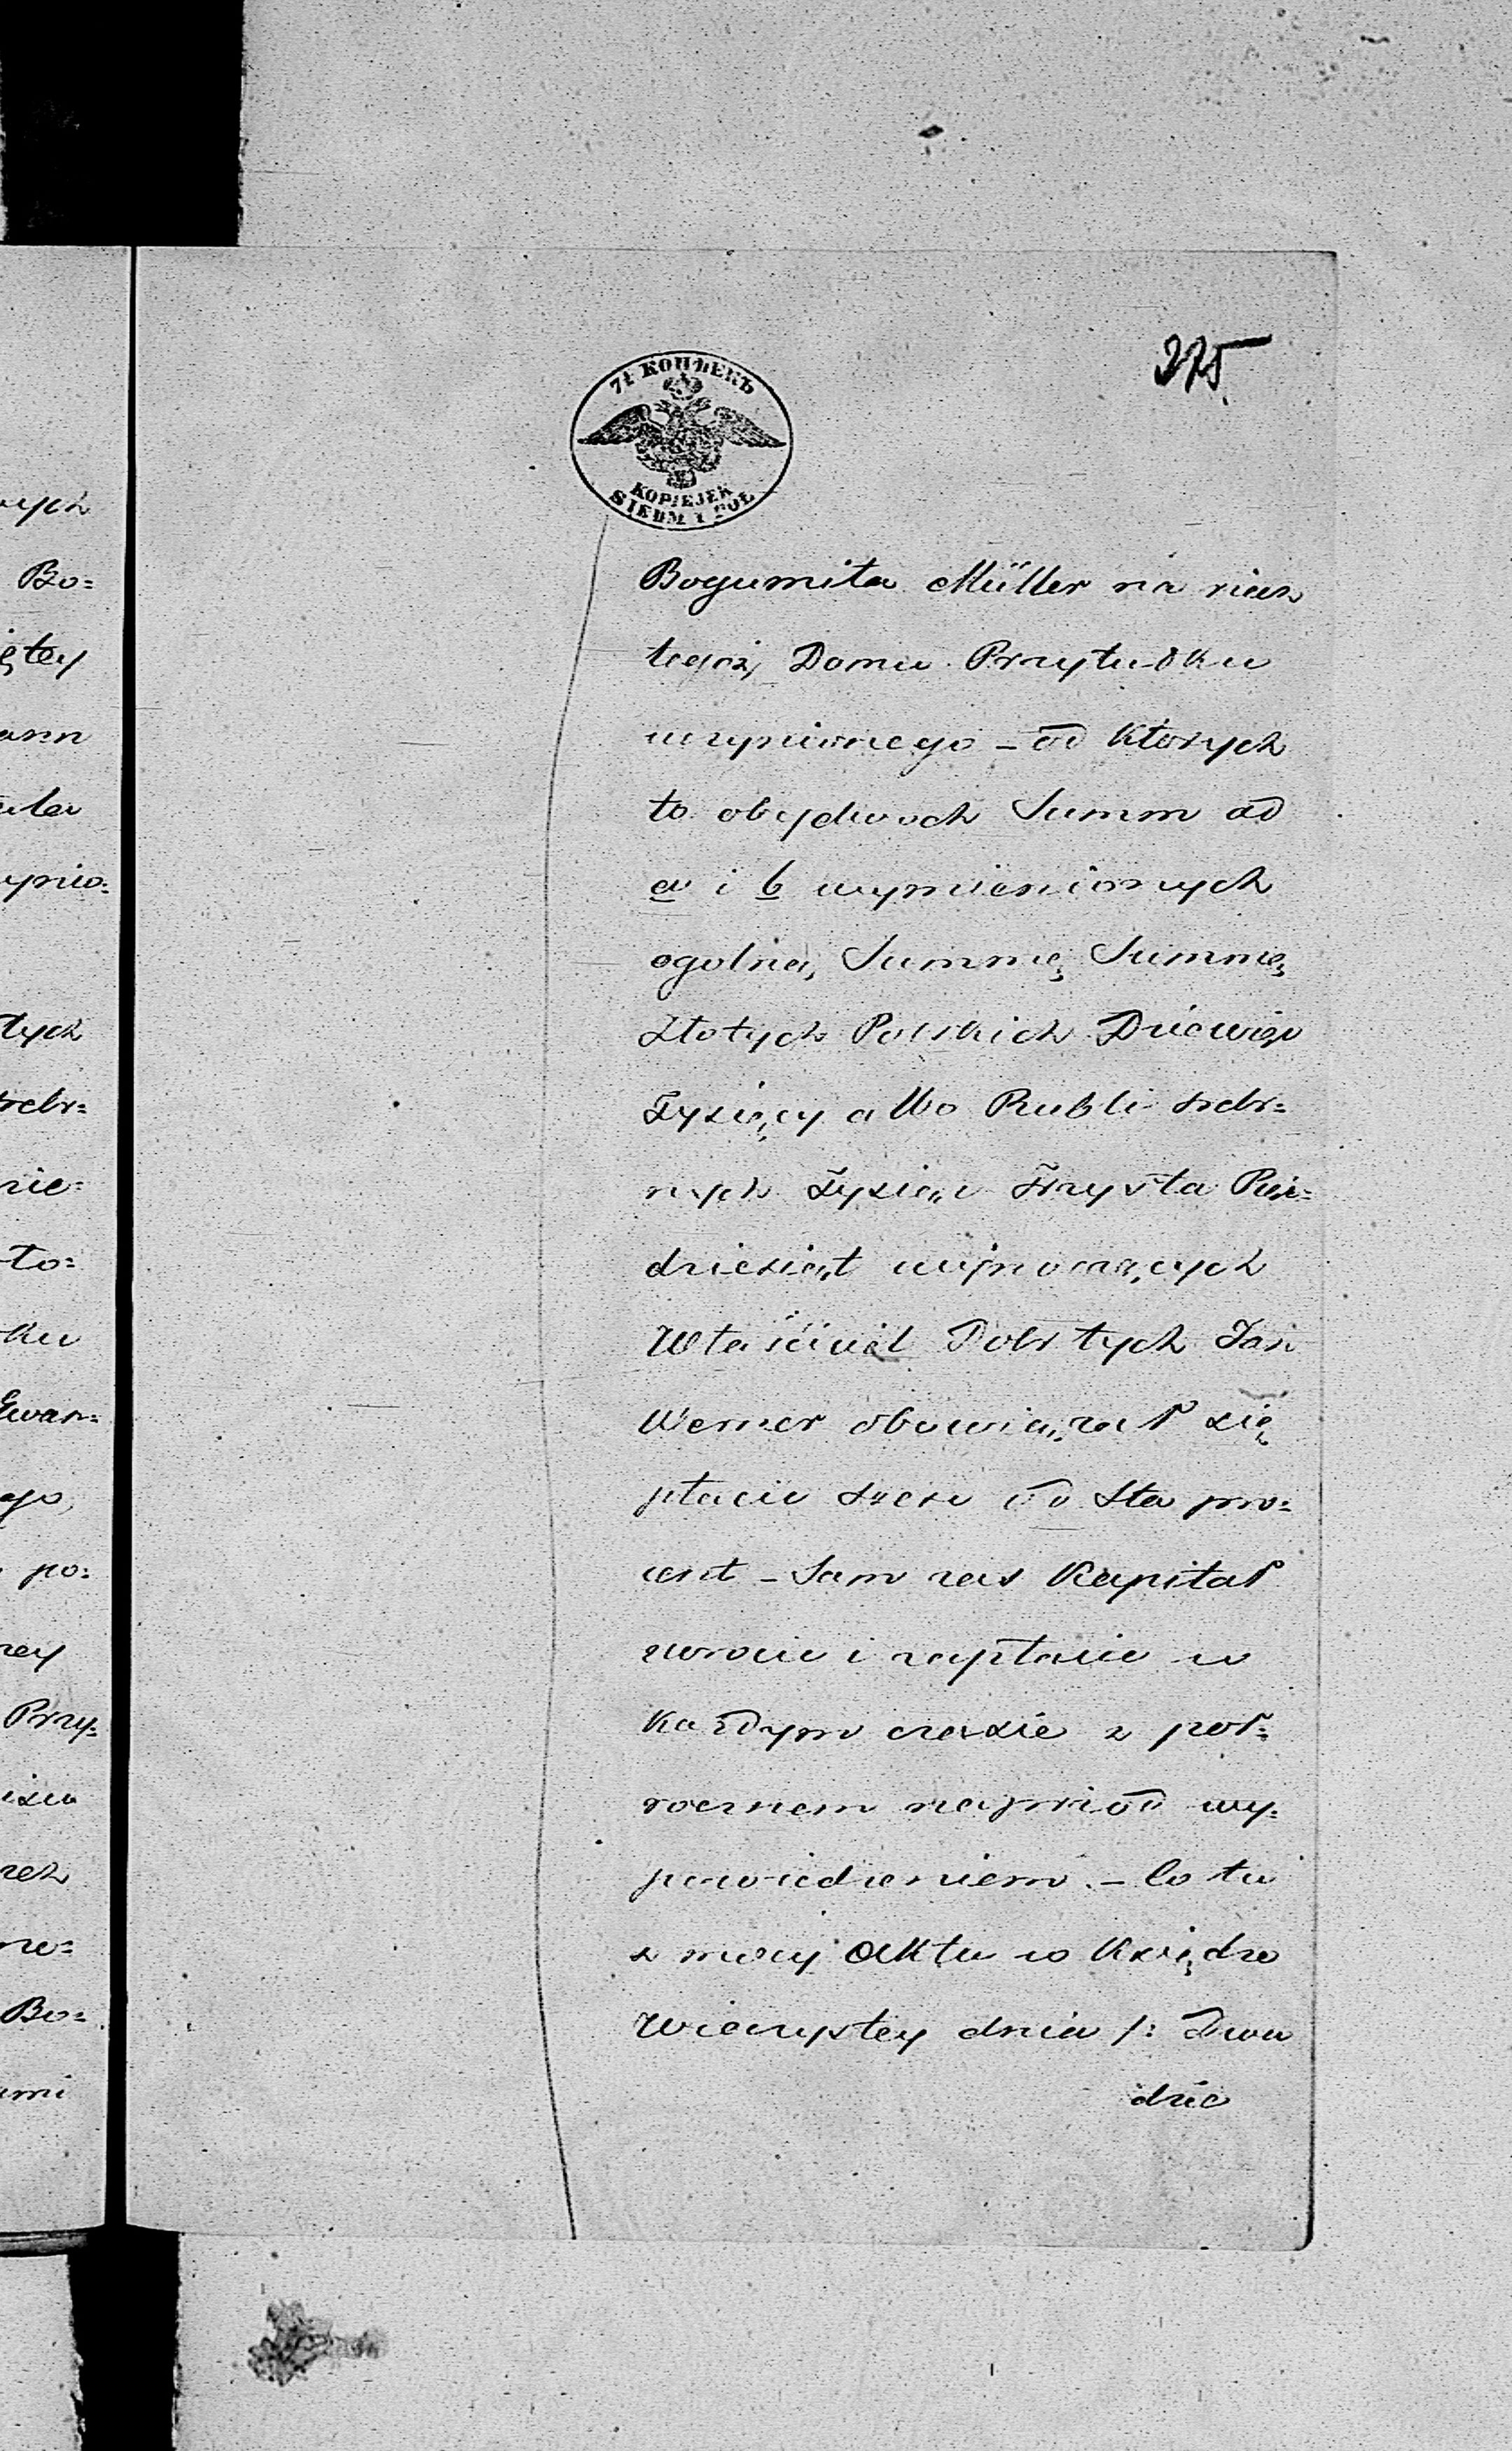 375
7½ КОПѢЕКЪ
KOPIEJEK
SIEDM I PÓŁ
wych
Bo=
iętey
ann
tych
srebr=
nie=
to=
ku
Ewan=
ego,
po=
rey
Przy=
Bo=
ami
Bogumiła Müller na rzecz
tegoż Domu Przytułku
uczynionego – od których
to obydwoch Summ ad
a i b wymienionych
ogolną Summę Summę
Złotych Polskich Dziewięć
Tysięcy albo Rubli srebr=
nych Tysiąc Trzysta Pięć=
dziesiąt wynoszących
Właściciel Dobr tych Jan
Werner obowiązał się
płacić sześć od sta pro=
cent – Sam zaś Kapitał
zwrócić i zapłacić w
każdym czasie z poł=
rocznem naprzód wy=
powiedzeniem. – Co tu
z mocy aktu w Księdze
Wieczystey dnia /: Dwu
dzie